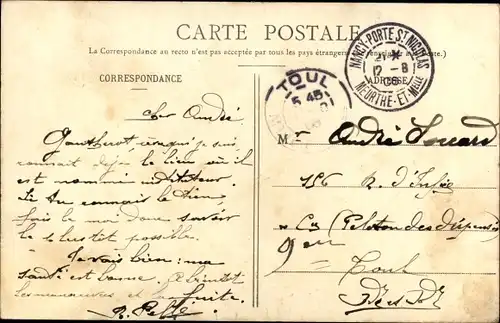 CARTE POSTALE
(La Correspondance au recto n'est pas acceptée par tous les pays étrangers
CORRESPONDANCE
ADRESSE
NANCY-PORTE ST NICOLAS
12 - 8
MEURTHE-ET-MLLE
TOUL
5 45
cher André
Gautherot
connait déjà le lieu où il
est nommé instituteur.
Si tu connais le tien,
fais le moi donc savoir
le plus tôt possible.
Je vais bien; ma
santé est bonne. A bientôt
les manœuvres et la fuite.
M r André
156 R. d'Infie
Cie (Peloton des dispensés)
9 em
Toul